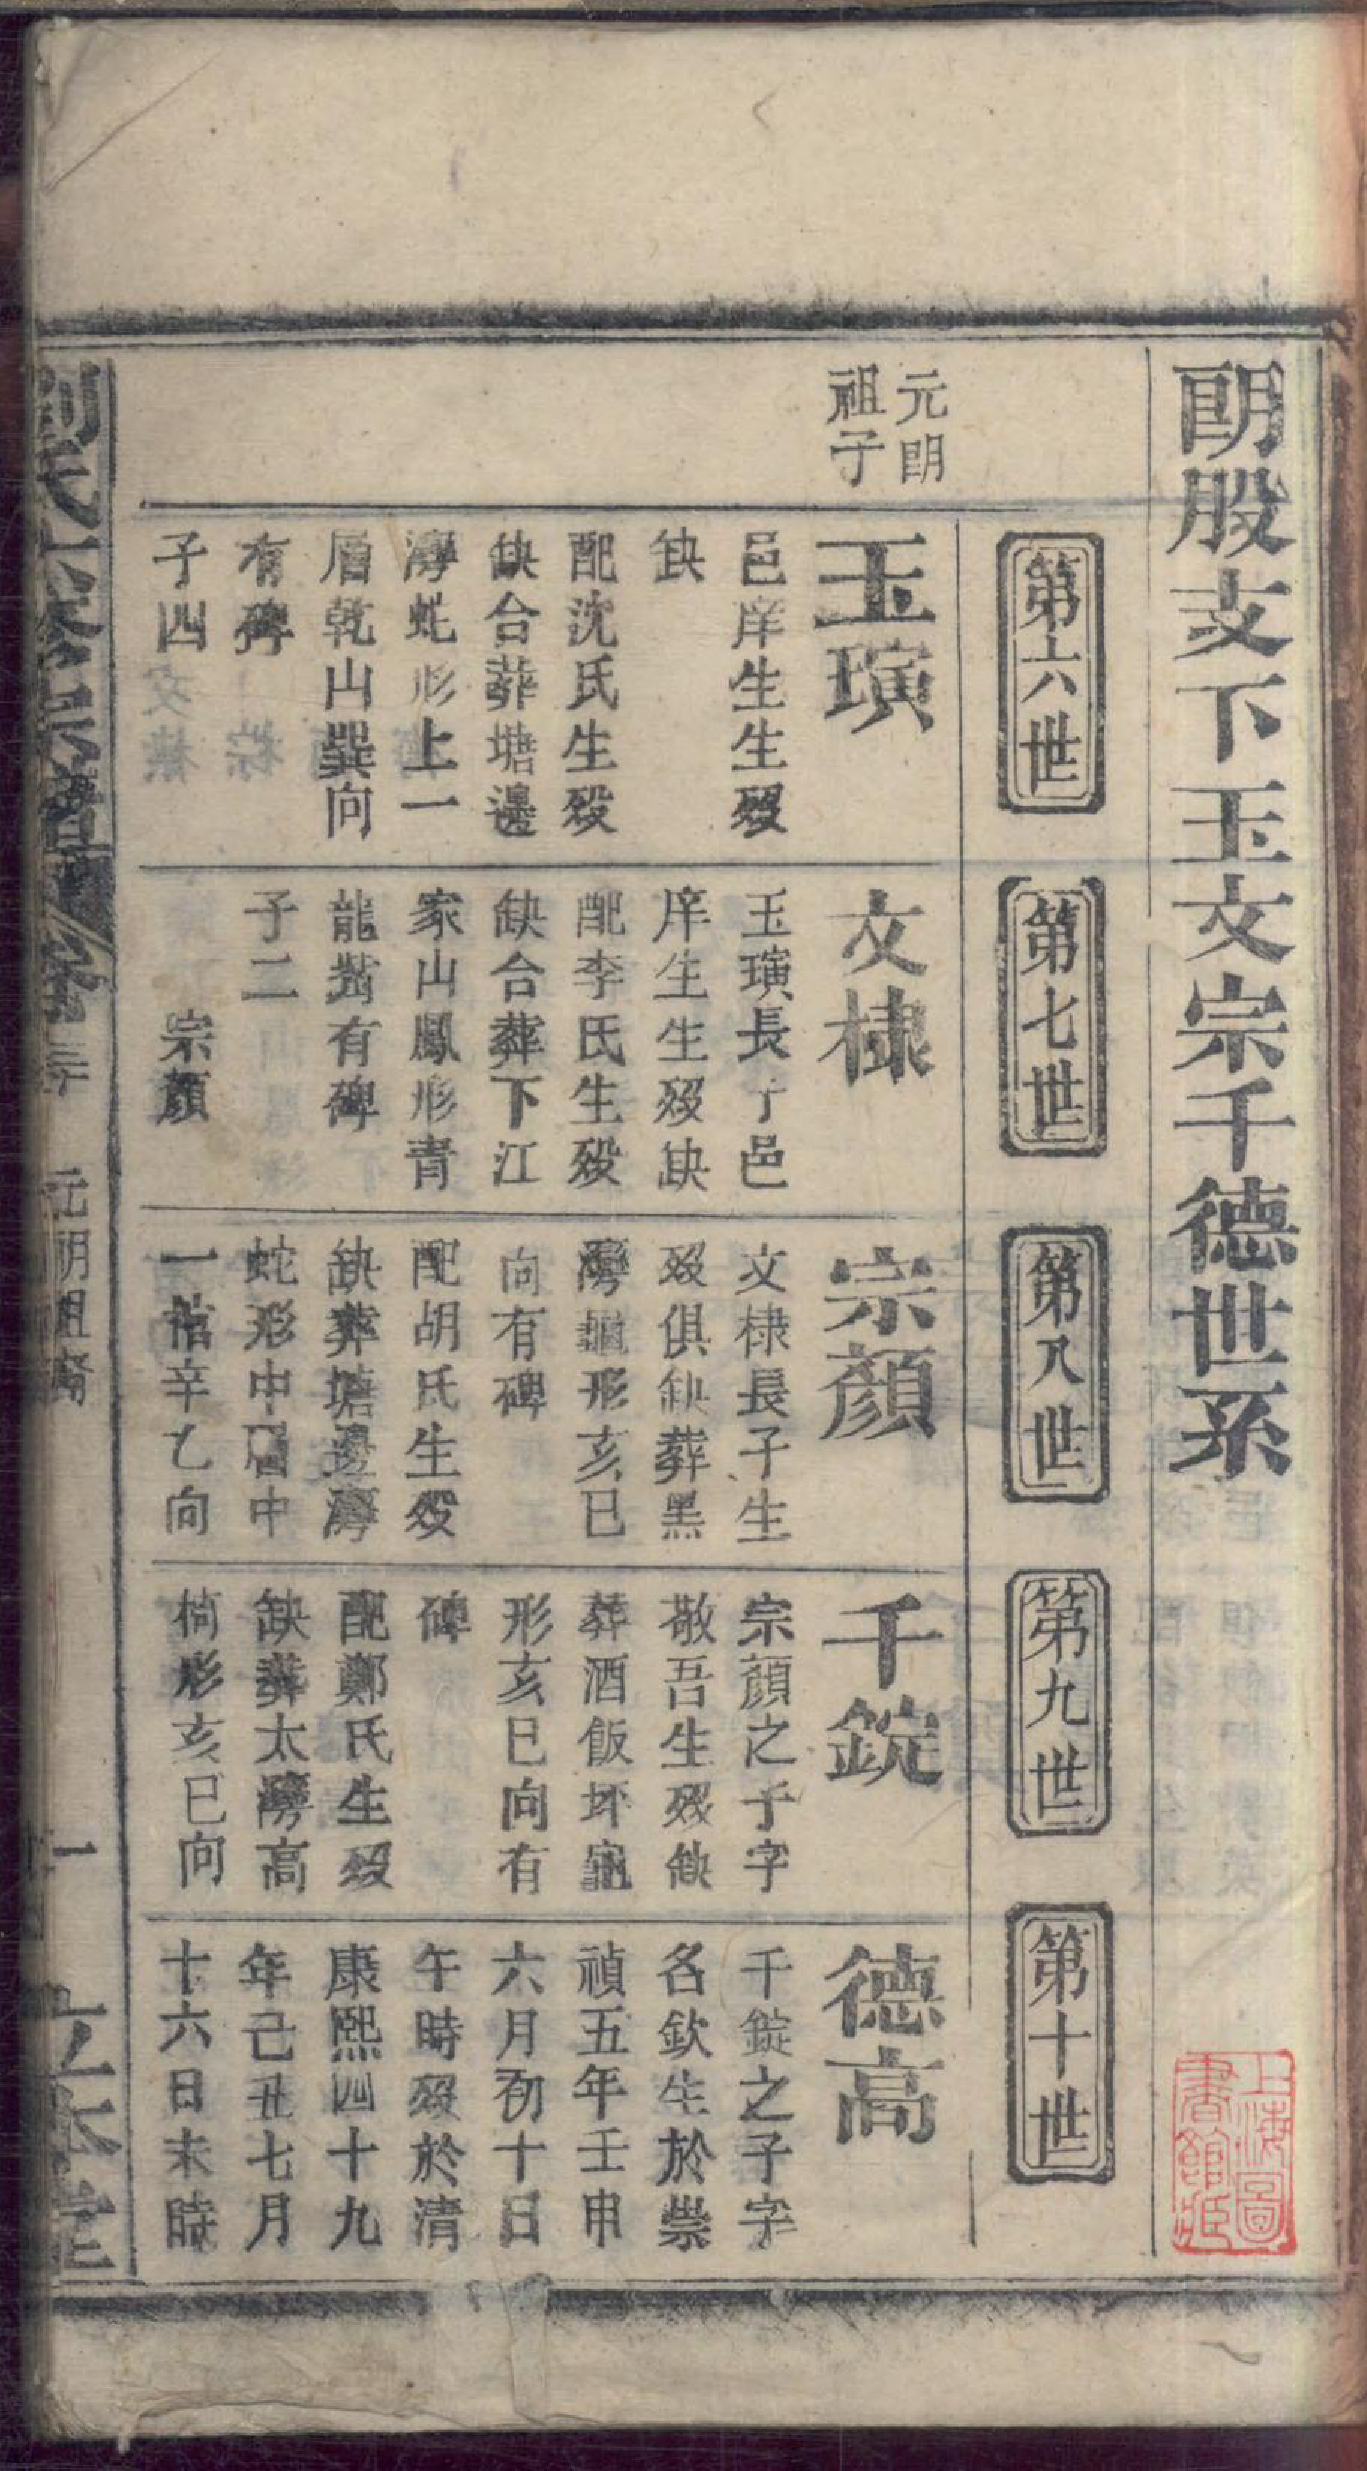 朗股支下玉文宗千德世系
第六世
第七世
第八世
第九世
第十世
元朗
祖子
玉璜
邑庠生生歿
缺
配沈氏生歿
缺合葬塘邊
灣虵形上一
層乾山巽向
有碑
子四
文棣
玉璜長子邑
庠生生歿缺
配李氏生歿
缺合葬下江
家山鳳形青
龍嘴有碑
子二
宗顏
宗顏
文棣長子生
歿俱缺葬黑
灣龜形亥巳
向有碑
配胡氏生歿
缺葬塘邊灣
蛇形中層中
一棺辛乙向
千錠
宗顏之子字
敬吾生歿缺
葬酒飯坏龜
形亥巳向有
碑
配鄭氏生歿
缺葬太灣高
椅形亥巳向
德高
千錠之子字
名欽生於崇
禎五年壬申
六月初十日
午時歿於清
康熙四十九
年己丑七月
十六日未時
劉氏六修宗譜
卷二十
元朗祖裔
一
上海圖
書館藏